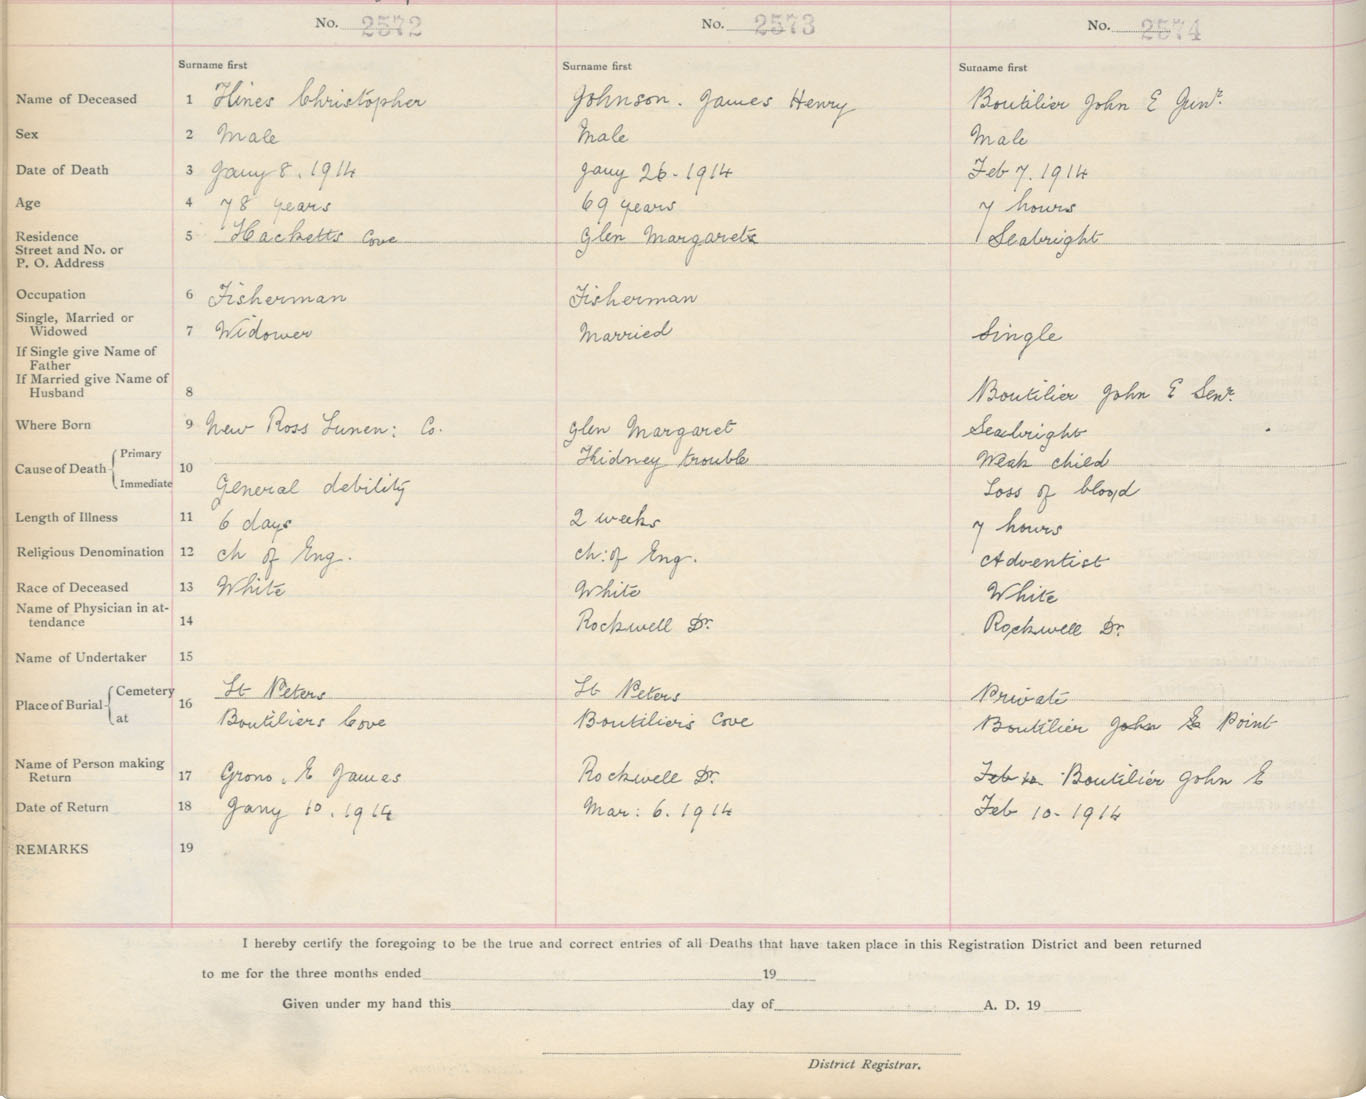 No. 2572 No. 2573 No. 2574
Surname first Surname first Surname first
Name of Deceased 1 Hines Christopher Johnson. James Henry Boutilier John E Junr.
Sex 2 Male Male Male
Date of Death 3 Jany 8. 1914 Jany 26-1914 Feb 7. 1914
Age 4 78 years 69 years 7 hours
Residence 5 Hacketts Cove Glen Margaret Seabright
Street and No. or
P. O. Address
Occupation 6 Fisherman Fisherman
Single, Married or
Widowed 7 Widower Married Single
If Single give Name of
Father
If Married give Name of
Husband 8 Boutilier John E Senr.
Where Born 9 New Ross Lunen: Co. Glen Margaret Seabright
Cause of Death Primary 10 Kidney trouble Weak child
Immediate General debility Loss of blood
Length of Illness 11 6 days 2 weeks 7 hours
Religious Denomination 12 ch of Eng. ch: of Eng. Adventist
Race of Deceased 13 White White White
Name of Physician in at-
tendance 14 Rockwell Dr. Rockwell Dr.
Name of Undertaker 15
Place of Burial Cemetery 16 St Peters St Peters Private
at Boutiliers Cove Boutiliers Cove Boutilier John Point
Name of Person making
Return 17 Grono. E James Rockwell Dr. Feb Boutilier John E
Date of Return 18 Jany 10. 1914 Mar: 6. 1914 Feb 10-1914
REMARKS 19
I hereby certify the foregoing to be the true and correct entries of all Deaths that have taken place in this Registration District and been returned
to me for the three months ended 19
Given under my hand this day of A. D. 19
District Registrar.